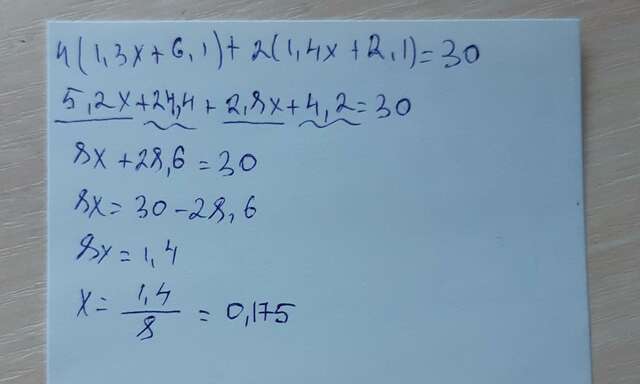 4(1,3x+6,1)+2(1,4x+2,1)=30
5,2x+24,4+2,8x+4,2=30
8x+28,6=30
8x=30-28,6
8x=1,4
x=1,4/8=0,175